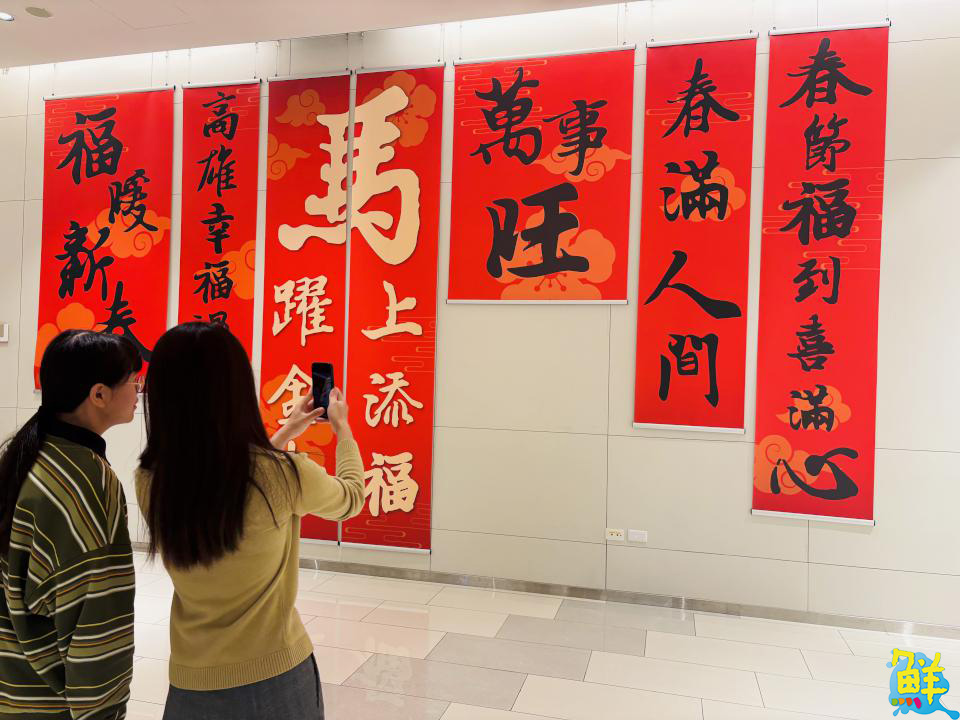 福暖新春
高雄幸福
馬
躍金
馬上添福
萬事旺
春滿人間
春節福到喜滿心
鮮